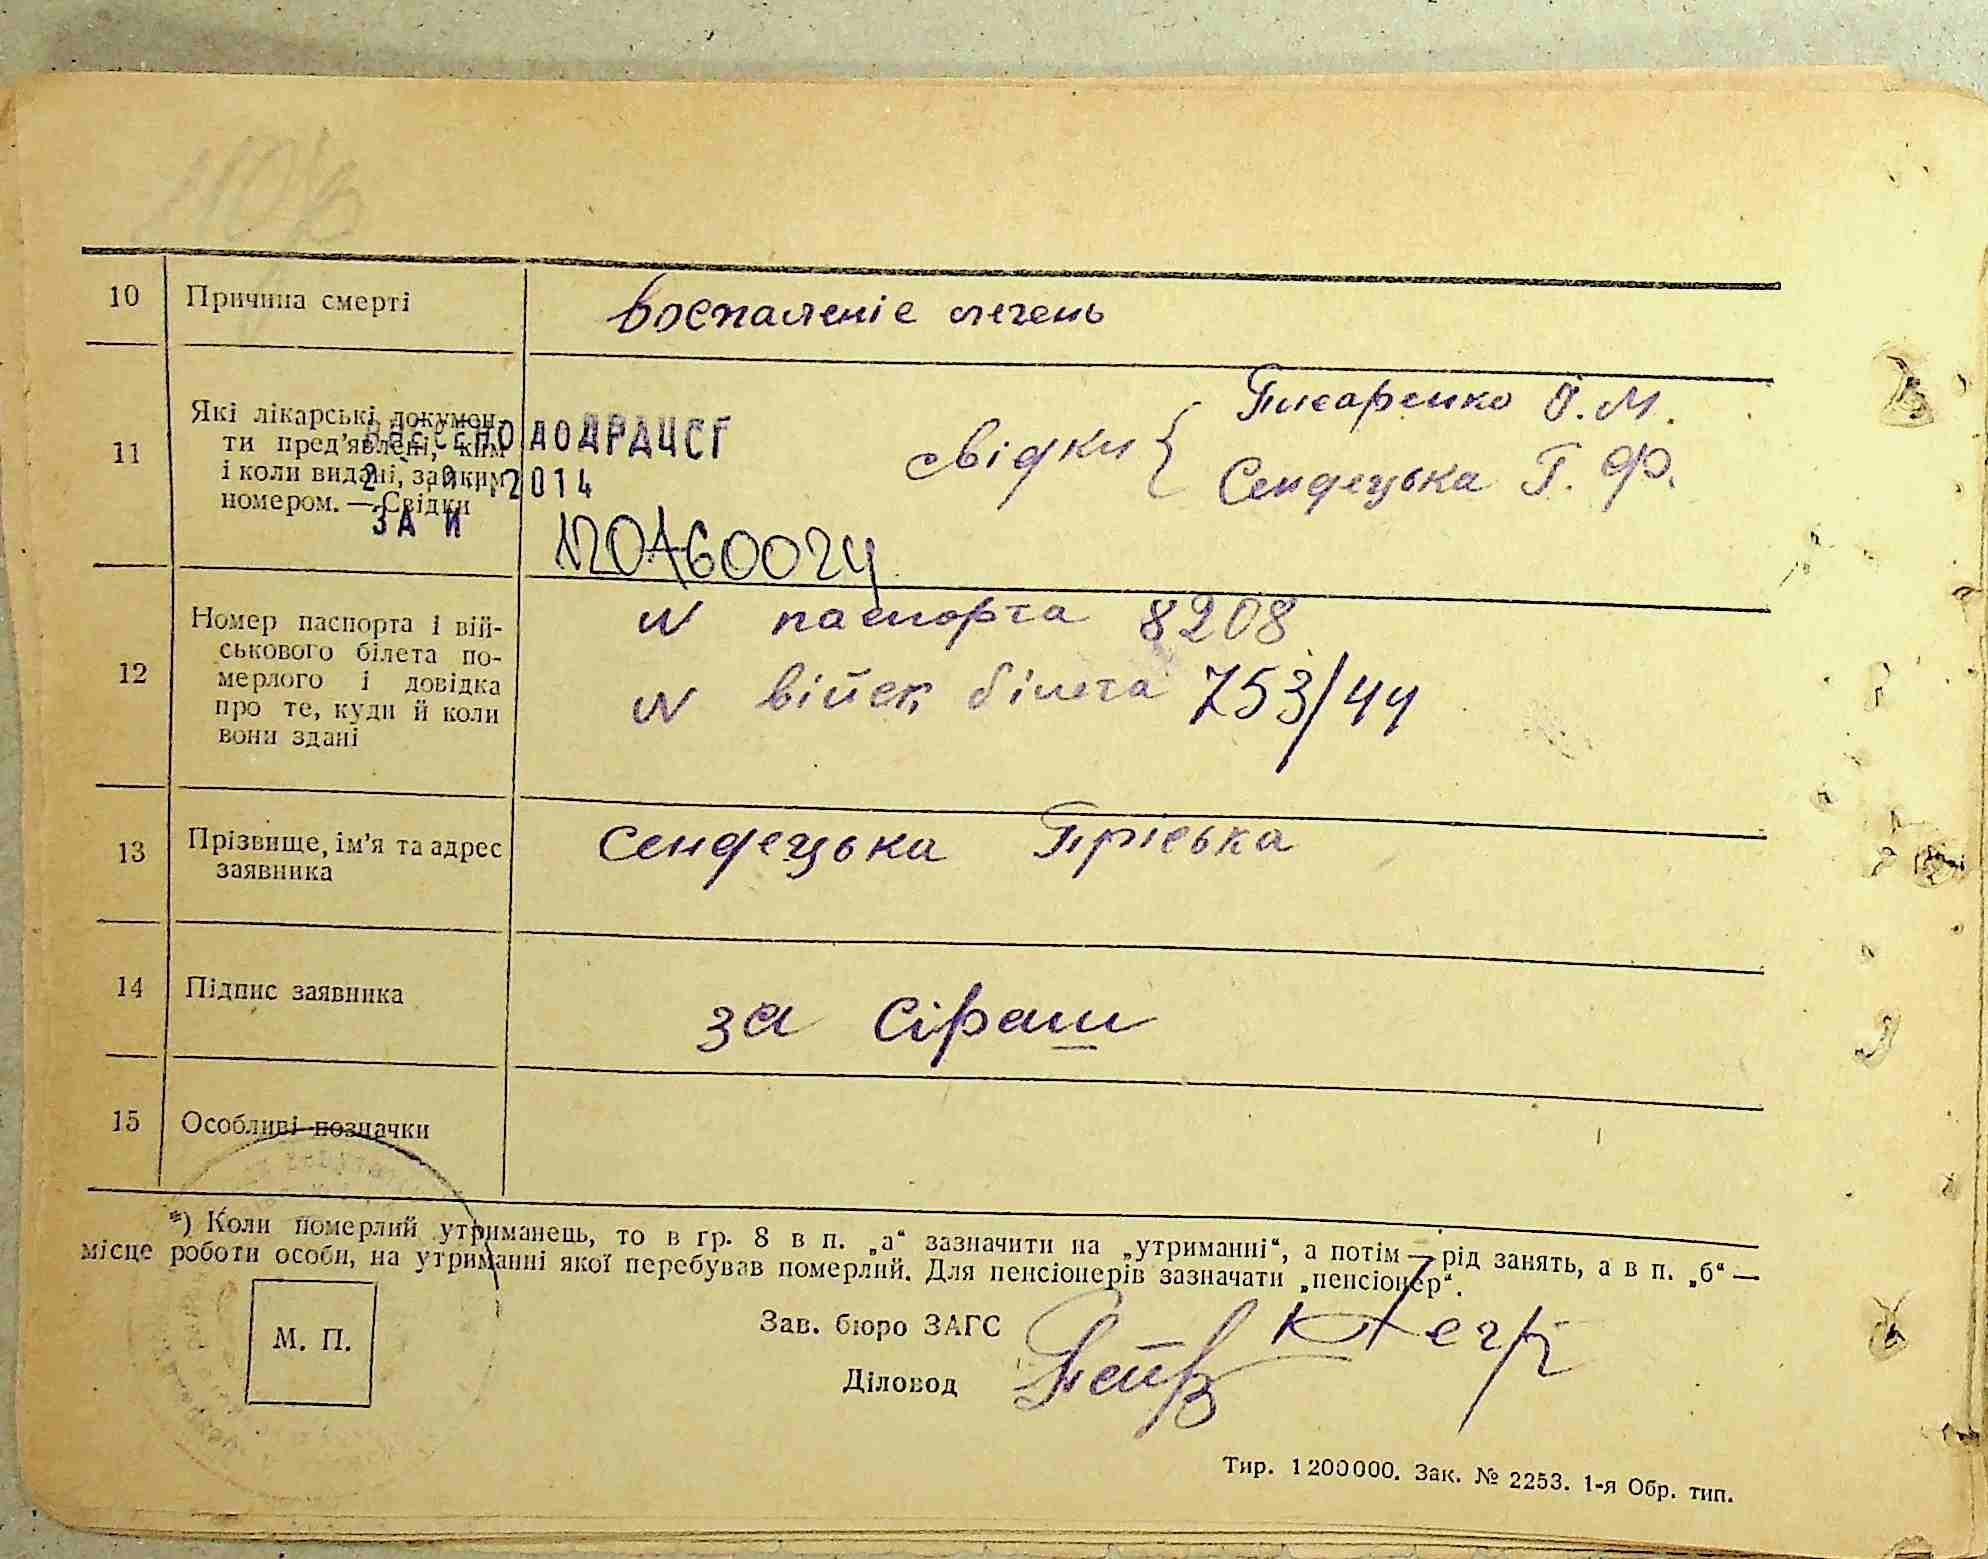 10 Причина смерті Воспаленіе печень
11 Які лікарські докумен-
ти пред'явлені, ким
і коли видані, за яким
номером. — Свідки
ВНЕСЕНО ДО ДРАЦСГ
2014
ЗА №
120460024
свідки { Писаренко О. М.
Сендецька П. Ф.
12 Номер паспорта і вій-
ськового білета по-
мерлого і довідка
про те, куди й коли
вони здані
№ паспорта 8208
№ війск білета 753/44
13 Прізвище, ім'я та адрес
заявника
Сендецька Пріська
14 Підпис заявника
за Сіраш
15 Особливі позначки
*) Коли померлий утриманець, то в гр. 8 в п. „а“ зазначити на „утриманні“, а потім — рід занять, а в п. „б“ —
місце роботи особи, на утриманні якої перебував померлий. Для пенсіонерів зазначати „пенсіонер“.
М. П.
Зав. бюро ЗАГС
Діловод
Тир. 1200000. Зак. № 2253. 1-я Обр. тип.